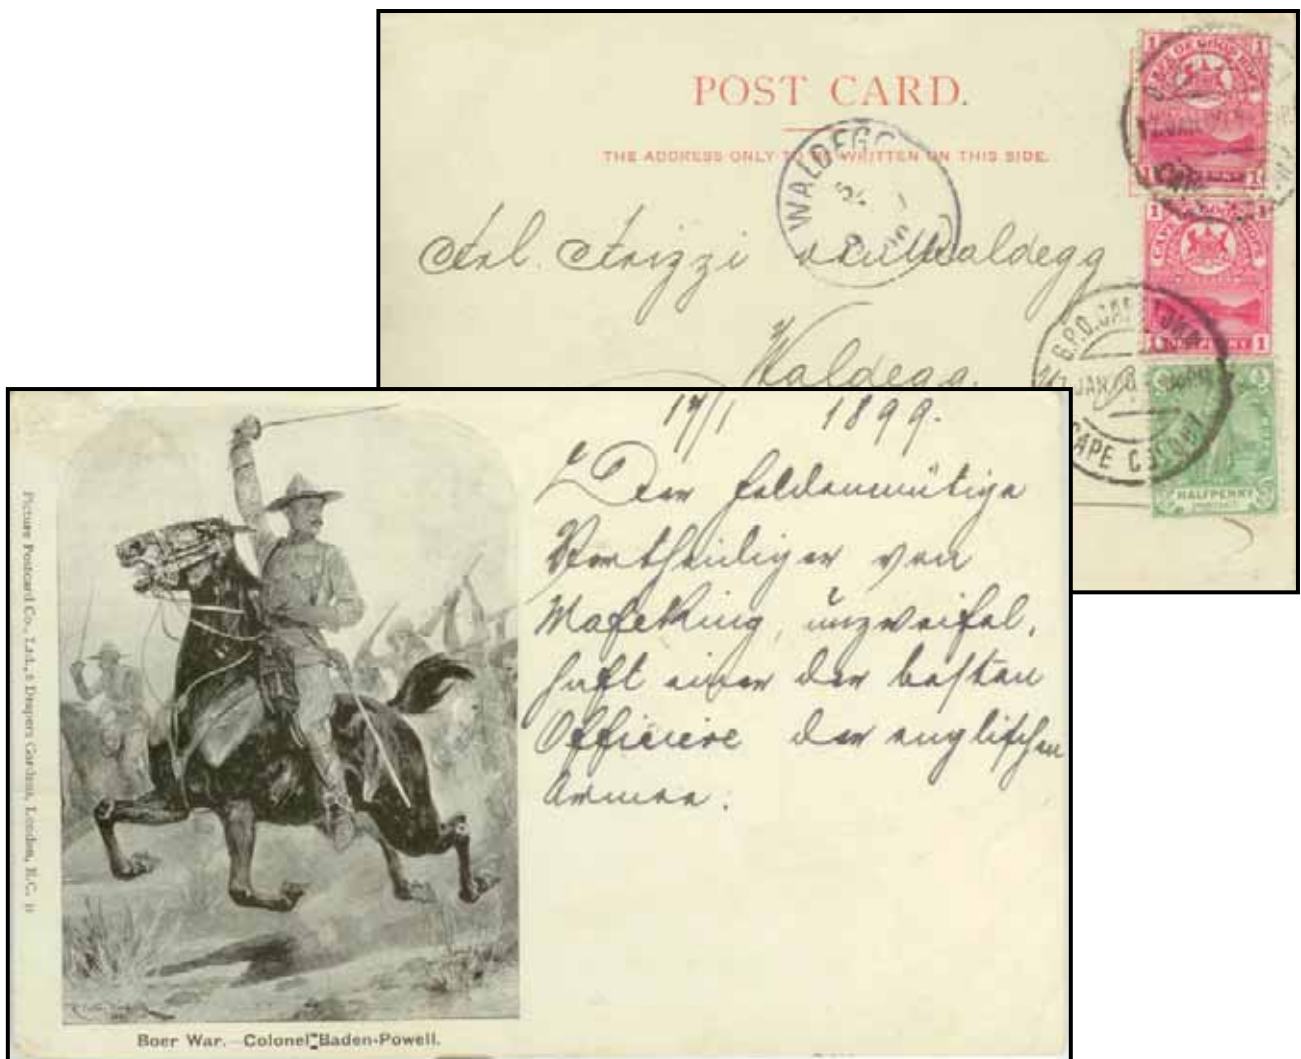 POST CARD.
THE ADDRESS ONLY TO BE WRITTEN ON THIS SIDE.
WALDEGG
Frl. Frizzi Waldegg
Waldegg.
1 CAPE OF GOOD HOPE 1
1 1
1 CAPE OF GOOD HOPE 1
1 ONE PENNY 1
G.P.O. CAPE TOWN
JAN 00
CAPE COLONY
HALFPENNY
17/1 1899.
Der heldenmütige
Vertheidiger von
Mafeking, unzweifel,
haft einer der besten
Officiere der englischen
Armee.
Picture Postcard Co., Ltd., Drapers Gardens, London, E.C.
Boer War.—Colonel Baden-Powell.